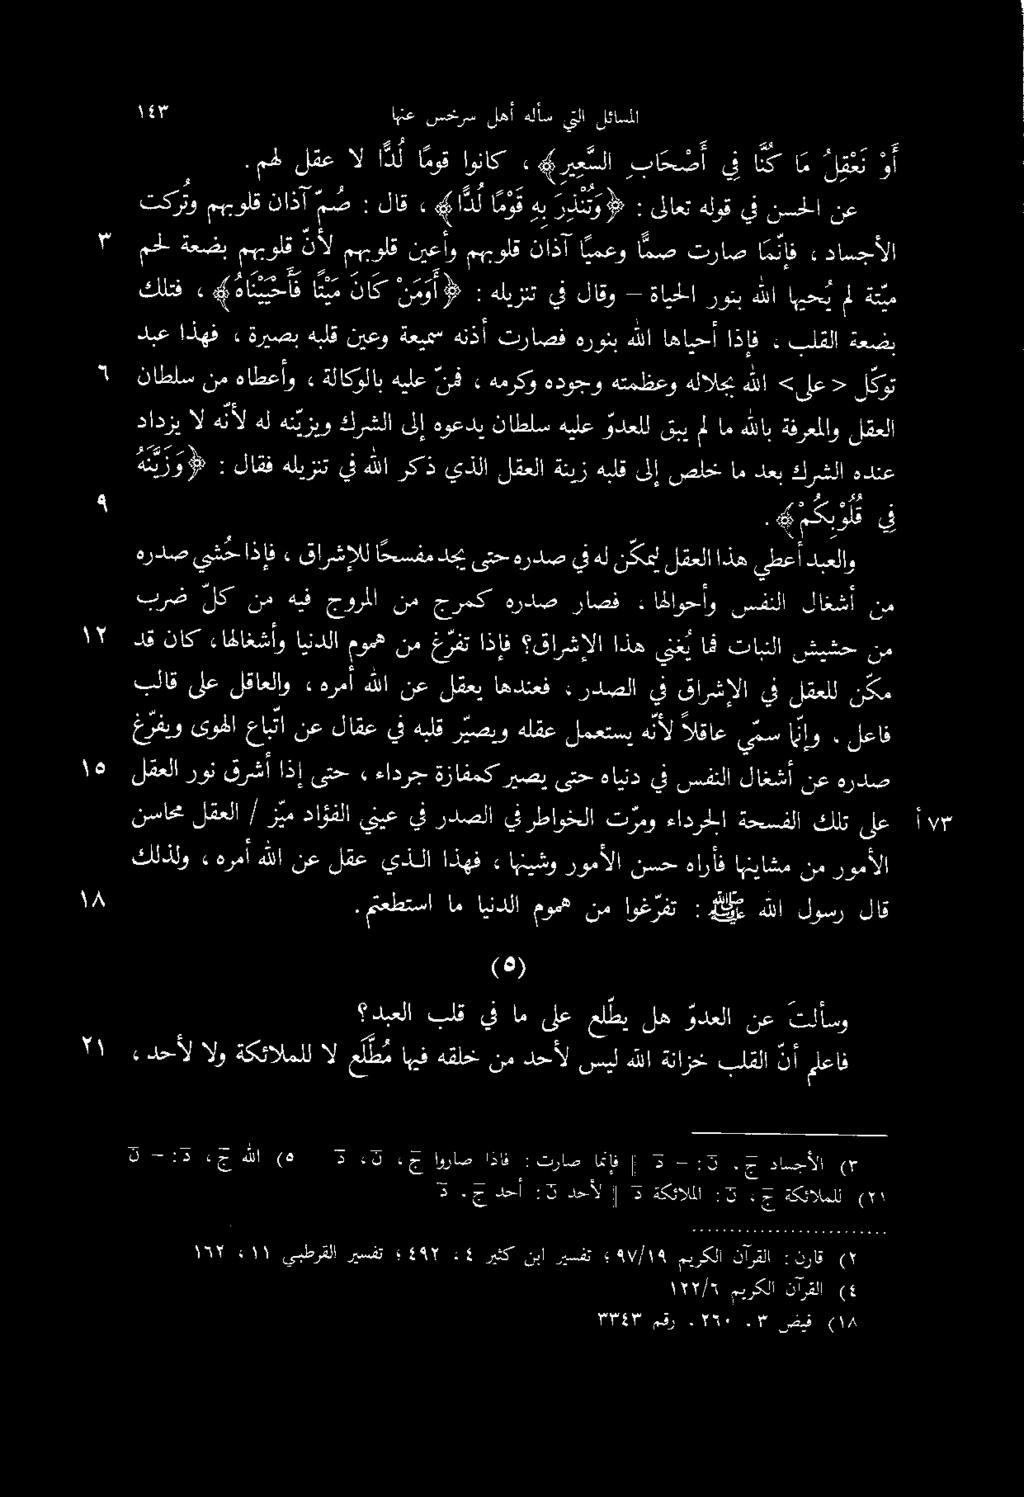 المسائل التي سأله أهل سرخس عنها ١٤٣
أَوْ نَعْقِلُ مَا كُنَّا فِي أَصْحَابِ السَّعِيرِ﴾ ، وكانوا قومًا لُدًّا لا عقل لهم.
عن الحسن في قوله تعالى : ﴿وَتُنْذِرَ بِهِ قَوْمًا لُدًّا﴾ ، قال : صُمّ آذان قلوبهم وتُركت
الأجساد ، فإنّما صارت صمًّا وعميًا آذان قلوبهم وأعين قلوبهم لأنّ قلوبهم بضعة لحم ٣
ميّتة لم يُحيها الله بنور الحياة – وقال في تنزيله : ﴿أَوَمَنْ كَانَ مَيْتًا فَأَحْيَيْنَاهُ﴾ ، فتلك
بضعة القلب ، فإذا أحياها الله بنوره فصارت أذنه سميعة وعين قلبه بصيرة ، فهذا عبد
توكّل <على> الله بجلاله وعظمته وجوده وكرمه ، فمنّ عليه بالوكالة ، وأعطاه من سلطان ٦
العقل والمعرفة بالله ما لم يبق للعدوّ عليه سلطان يدعوه إلى الشرك ويزيّنه له لأنّه لا يزداد
عنده الشرك بعد ما خلص إلى قلبه زينة العقل الذي ذكر الله في تنزيله فقال : ﴿وَزَيَّنَهُ
فِي قُلُوْبِكُمْ﴾. ٩
والعبد أعطي هذا العقل ليمكّن له في صدره حتى يجد مفسحًا للإشراق ، فإذا حُشي صدره
من أشغال النفس وأحوالها ، فصار صدره كمرج من المروج فيه من كلّ ضرب
من حشيش النبات فما يُغني هذا الإشراق؟ فإذا تفرّغ من هموم الدنيا وأشغالها، كان قد ١٢
مكّن للعقل في الإشراق في الصدر ، فعندها يعقل عن الله أمره ، والعاقل على قالب
فاعل . وإنّما سمّي عاقلاً لأنّه يستعمل عقله ويصيّر قلبه في عقال عن اتّباع الهوى ويفرّغ
صدره عن أشغال النفس في دنياه حتى يصير كمفازة جرداء ، حتى إذا أشرق نور العقل ١٥
على تلك الفسحة الجرداء ومرّت الخواطر في الصدر في عيني الفؤاد ميّز / العقل محاسن ٧٣ أ
الأمور من مشاينها فأراه حسن الأمور وشينها ، فهذا الذي عقل عن الله أمره ، ولذلك
قال رسول الله ﷺ : تفرّغوا من هموم الدنيا ما استطعتم. ١٨
(٥)
وسألتَ عن العدوّ هل يطّلع على ما في قلب العبد؟
فاعلم أنّ القلب خزانة الله ليس لأحد من خلقه فيها مُطَّلَع لا للملائكة ولا لأحد ، ٢١
٣) الأجساد ج ، ن: – د || فإنّما صارت : فاذا صاروا ج ، ن ، د ٥) الله ج ، د: – ن
٢١) للملائكة ج ، ن: الملائكة د || لأحد ن: أحد ج ، د
٢) قارن : القرآن الكريم ٩٧/١٩ ؛ تفسير ابن كثير ٤ ، ٤٩٢ ؛ تفسير القرطبي ١١ ، ١٦٢
٤) القرآن الكريم ١٢٢/٦
١٨) فيض ٣ ، ٢٦٠ ، رقم ٣٣٤٣